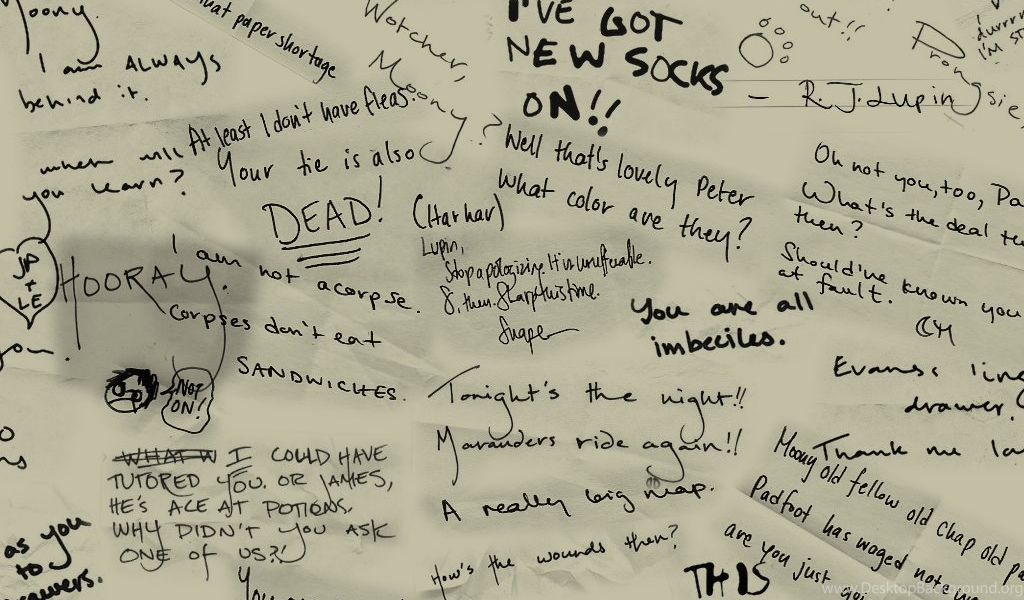 Moony.
I am ALWAYS
behind it.
that paper shortage
Wotcher,
Moony?
I'VE GOT
NEW SOCKS
ON!!
out!!
Prongs
I'M
— R.J.Lupin
when will
you learn?
At least I don't have fleas.
Your tie is also
DEAD!
(Har har)
Well that's lovely Peter
What color are they?
Oh not you, too,
What's the deal
then?
Should've known you
at fault.
JP
+
LE
HOORAY.
I am not
a corpse.
Corpses don't eat
SANDWICHES.
Lupin,
Stop apologizing. It is insufferable.
8, then. 8 sharp this time.
Snape
You are all
imbeciles.
NOT
ON!
Tonight's the night!!
Marauders ride again!!
A really big map.
Evans's
drawer.
Thank me
WHAT W I COULD HAVE
TUTORED YOU. OR JAMES,
HE'S ACE AT POTIONS.
WHY DIDN'T YOU ASK
ONE OF US?!
Moony old fellow old chap old
Padfoot has waged
are you just
as you
to
How's the wounds then?
THIS
www.DesktopBackground.org